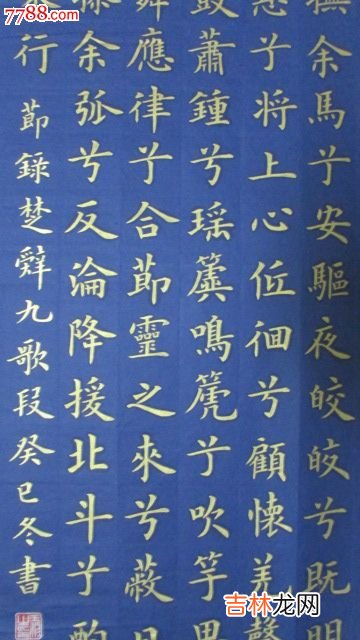 7788.com
撫余馬兮安驅夜皎皎兮既明
息兮将上心低徊兮顧懷羌
鼓蕭鍾兮瑶簴鳴篪兮吹竽思
舞應律兮合節靈之來兮蔽日
操余弧兮反淪降援北斗兮酌
行
節錄楚辭九歌段癸巳冬書
吉林龙网